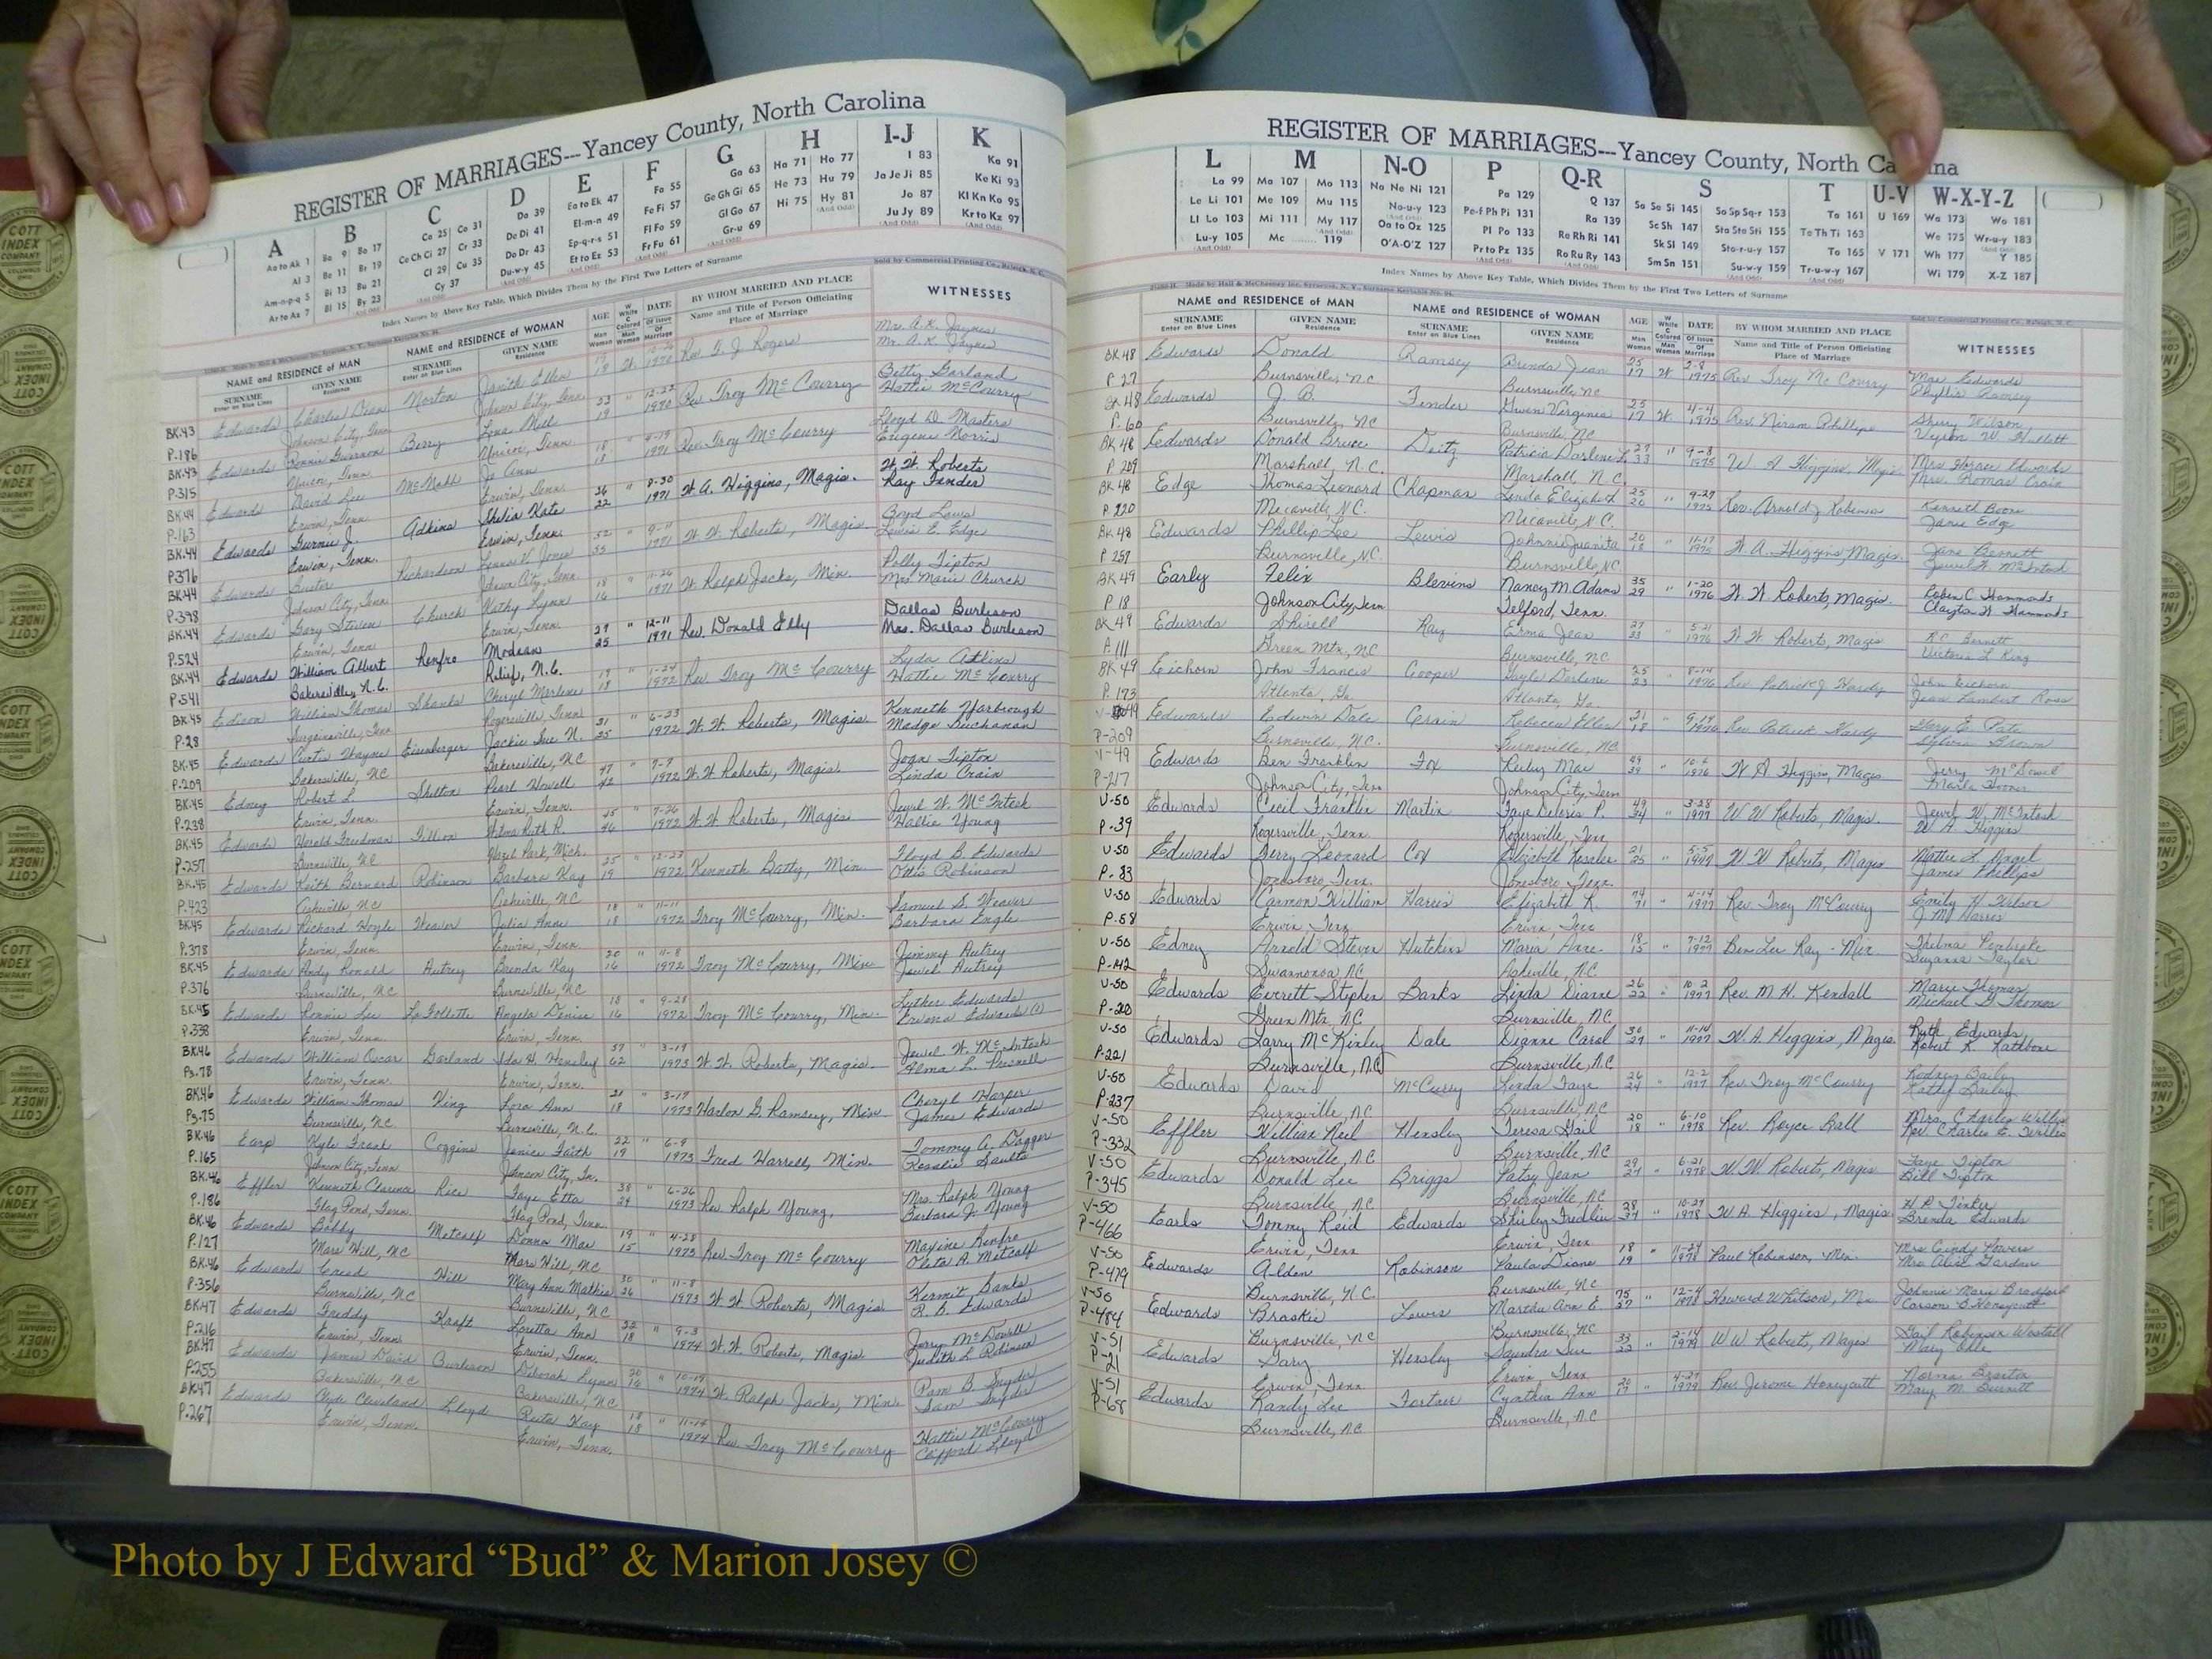 REGISTER OF MARRIAGES---Yancey County, North Carolina
A B C D E F G H I-J K
Index Names by Above Key Table, Which Divides Them by the First Two Letters of Surname
Sold by Commercial Printing Co., Raleigh, N. C.
NAME and RESIDENCE OF MAN NAME and RESIDENCE OF WOMAN AGE DATE BY WHOM MARRIED AND PLACE WITNESSES
SURNAME GIVEN NAME SURNAME GIVEN NAME Name and Title of Person Officiating
Enter on Blue Lines Residence Enter on Blue Lines Residence Place of Marriage
BK.43 Edwards Charles Dean Norton Janith Ellen 1970 Rev. F. J. Rogers Mrs. A. K. Jaynes
P.186 Johnson City, Tenn. Johnson City, Tenn. Mr. A. K. Jaynes
BK.43 Edwards Berry 12-22 1970 Rev. Troy McCourry Betty Garland
P.315 Unicoi, Tenn. Hattie McCourry
BK.44 Edwards David Lee McNabb Jo Ann 18 " 4-19 1971 Rev. Troy McCourry Lloyd D. Masters
P.163 Erwin, Tenn. Erwin, Tenn. 18 Eugene Norris
BK.44 Edwards Adkins Shelia Kate 26 " 8-30 1971 W. A. Higgins, Magis. W. W. Roberts
P.376 Erwin, Tenn. Erwin, Tenn. 22 Ray Fender
BK.44 Edwards Richardson 52 " 1971 W. W. Roberts, Magis. Boyd Laws
P.398 Johnson City, Tenn. Johnson City, Tenn. Lewis E. Edge
BK.44 Edwards Gary Steven Church Kathy Lynn 18 " 11-26 1971 W. Ralph Jacks, Min. Polly Tipton
P.524 Erwin, Tenn. Erwin, Tenn. 16 Mrs. Marie Church
BK.44 Edwards William Albert Renfro Modean 29 " 12-11 1971 Rev. Donald Elly Dallas Burleson
P.541 Bakersville, N.C. Relief, N.C. 25 Mrs. Dallas Burleson
BK.45 Edison William Thomas Shanks Cheryl Marlene 19 " 1-24 1972 Rev Troy McCourry Lyda Atkins
P.28 Surgoinsville, Tenn Rogersville, Tenn 18 Hattie McCourry
BK.45 Edwards Curtis Wayne Eisenberger Jackie Sue N. 31 " 6-23 1972 W. W. Roberts, Magis. Kenneth Yarbrough
P.209 Bakersville, NC Bakersville, NC 25 Madge Buchanan
BK.45 Edney Robert L. Shelton Pearl Howell 47 " 7-7 1972 W. W. Roberts, Magis. Joan Tipton
P.238 Erwin, Tenn. Erwin, Tenn. 42 Linda Crain
BK.45 Edwards Harold Freedman Wilma Ruth R. 45 " 7-26 1972 W. W. Roberts, Magis Jewel W. McIntosh
P.257 Burnsville, NC Hazel Park, Mich. 46 Hallie Young
BK.45 Edwards Keith Bernard Robinson Barbara Kay 25 " 12-23 1972 Kenneth Batty, Min. Floyd B. Edwards
P.423 Asheville, NC Asheville, NC 19 Ottis Robinson
BK45 Edwards Richard Hoyle Weaver Julia Ann 18 " 11-11 1972 Troy McCourry, Min. Samuel S. Weaver
P.378 Erwin, Tenn. Erwin, Tenn. 18 Barbara Engle
BK.45 Edwards Andy Ronald Autrey Brenda Kay 20 " 11-8 1972 Troy McCourry, Min. Jimmy Autrey
P.376 Burnsville, NC Burnsville, NC 16 Jewel Autrey
BK.45 Edwards Ronnie Lee LaFollette Angela Denise 18 " 9-28 1972 Troy McCourry, Min. Luther Edwards
P.338 Erwin, Tenn. Erwin, Tenn. 16
BK.46 Edwards William Oscar Garland Ida H. Hensley 57 " 3-19 1973 W. W. Roberts, Magis. Jewel W. McIntosh
Pg.78 Erwin, Tenn. Erwin, Tenn. 62 Alma L. Presnell
BK.46 Edwards William Thomas King Lora Ann 21 " 3-17 1973 Harlon G. Ramsey, Min Cheryl Harper
Pg.75 Burnsville, NC. Burnsville, N.C. 18 James Edwards
BK.46 Earp Kyle Frank Coggins Janice Faith 22 " 6-9 1973 Fred Harrell, Min. Tommy A. Dagger
P.165 Johnson City, Tenn Johnson City, Tn. 19 Rosalie Saults
BK.46 Effler Kenneth Clarence Rice Faye Etta 38 " 6-26 1973 Rev. Ralph Young. Mrs. Ralph Young
P.186 Flag Pond, Tenn. Flag Pond, Tenn. 24 Barbara J. Young
BK.46 Edwards Bobby Metcalf Donna Mae 19 " 4-28 1973 Rev. Troy McCourry Maxine Renfro
P.127 Mars Hill, NC Mars Hill, NC 15 Oleta A. Metcalf
BK.46 Edwards Creed Hill Mary Ann Mathis 30 " 11-8 1973 W. W. Roberts, Magis Kermit Banks
P.356 Burnsville, NC Burnsville, NC 36 R. B. Edwards
BK.47 Edwards Freddy Kraft Loretta Ann 22 " 9-3 1974 W. W. Roberts, Magis. Jerry McDowell
P.216 Erwin, Tenn Erwin, Tenn. 18 Judith L Robinson
BK.47 Edwards James David Burleson Deborah Lynn 20 " 10-19 1974 W. Ralph Jacks, Min. Pam B. Snyder
P.255 Bakersville, NC Bakersville, NC 16 Sam Snyder
BK47 Edwards Clyde Cleveland Lloyd Reita Kay 18 " 11-14 1974 Rev. Troy McCourry Hattie McCourry
P.267 Erwin, Tenn. Erwin, Tenn. Clifford Lloyd
REGISTER OF MARRIAGES---Yancey County, North Ca ina
L M N-O P Q-R S T U-V W-X-Y-Z
La 99 Ma 107 Mo 113 Na Ne Ni 121 Pa 129 Q 137 Sa Se Si 145 So Sp Sq-r 153 Ta 161 U 169 Wa 173 Wo 181
Le Li 101 Me 109 Mu 115 No-u-y 123 Pe-f Ph Pi 131 Ra 139 Sc Sh 147 Sta Ste Sti 155 Te Th Ti 163 We 175 Wr-u-y 183
Ll Lo 103 Mi 111 My 117 Oa to Oz 125 Pl Po 133 Re Rh Ri 141 Sk Sl 149 Sto-r-u-y 157 To 165 V 171 Wh 177 Y 185
Lu-y 105 Mc 119 O'A-O'Z 127 Pr to Pz 135 Ro Ru Ry 143 Sm Sn 151 Su-w-y 159 Tr-u-w-y 167 Wi 179 X-Z 187
Index Names by Above Key Table, Which Divides Them by the First Two Letters of Surname
Sold by Commercial Printing Co., Raleigh, N. C.
NAME and RESIDENCE OF MAN NAME and RESIDENCE OF WOMAN AGE DATE BY WHOM MARRIED AND PLACE WITNESSES
SURNAME GIVEN NAME SURNAME GIVEN NAME Name and Title of Person Officiating
Enter on Blue Lines Residence Enter on Blue Lines Residence Place of Marriage
BK 48 Edwards Donald Ramsey Brenda Jean 25 W 2-8 1975 Rev Troy McCourry Mrs. Edwards
P 27 Burnsville, NC Burnsville, NC 17 Phyllis Ramsey
BK 48 Edwards J. B. Fender Gwen Virginia 25 W 4-4 1975 Rev. Hiram Phillips Sherry Wilson
P. 60 Burnsville, NC Burnsville, NC 17
BK 48 Edwards Donald Bruce Deitz Patricia Darlene 27 " 9-8 1975 W A Higgins, Magis Mrs. Horace Edwards
P 209 Marshall, N.C. Marshall, N.C. 33 Mrs. Thomas Crain
BK 48 Edge Thomas Leonard Chapman Linda Elizabeth 25 " 9-27 1975 Rev. Arnold J Robinson Kenneth Boone
P 220 Micaville, N.C. Micaville, N.C. 26 Janie Edge
BK 48 Edwards Phillip Lee Lewis Johnnie Juanita 20 " 11-17 1975 W. A. Higgins, Magis. Jane Bennett
P 257 Burnsville, N.C. Burnsville, NC 18 Jewel W. McIntosh
BK 49 Early Felix Blevins Nancy M. Adams 35 " 1-20 1976 W. W. Roberts, Magis. Loben C. Hammonds
P 18 Johnson City, Tenn Telford, Tenn. 29 Clayton W Hammonds
BK 49 Edwards Shirell Ray Erma Jean 27 " 5-21 1976 W W Roberts, Magis R.C. Bennett
P. 111 Green Mtn, NC Burnsville, NC. 33 Victoria L King
BK 49 Eichorn John Francis Cooper Gayle Darlene 25 " 8-14 1976 Rev Patrick J Hardy John Eichorn
P. 173 Atlanta, Ga. Atlanta, Ga 23 Jean Lambert Ross
V-49 Edwards Edwin Dale Crain Rebecca Ellen 21 " 1976 Rev. Patrick Hardy Gary E Pate
P-209 Burnsville, NC. Burnsville, NC 18 Sylvia Brown
V-49 Edwards Ben Franklin Fox Ruby Mae 49 " 10-6 1976 W A Higgins, Magis Jerry McDowell
P-217 Johnson City, Tenn Johnson City, Tenn 39
V-50 Edwards Cecil Franklin Martin Faye Deloris P. 49 " 3-28 1977 W W Roberts, Magis. Jewel W. McIntosh
P-39 Rogersville, Tenn. Rogersville, Tenn 34 W A Higgins
V-50 Edwards Jerry Leonard Cox Elizabeth Kessler 21 " 5-5 W W Roberts, Magis Mattie L. Angel
P-83 Jonesboro, Tenn. Jonesboro, Tenn. 25 James Phillips
V-50 Edwards Carmon William Harris Elizabeth K. 74 " 4-14 1977 Rev. Troy McCourry Emily H. Wilson
P-58 Erwin, Tenn Erwin, Tenn 71 J. M. Harris
V-50 Edney Arnold Steven Hutchins Maria Anne 18 " 7-12 1977 Ben Lee Ray - Min. Thelma Penbryke
P-142 Swannanoa, NC Asheville, NC 15 Suzanne Taylor
V-50 Edwards Everett Stephen Banks Linda Dianne 26 " 10-2 1977 Rev. M. H. Kendall Marie Thomas
P-210 Green Mtn. NC Burnsville, NC 22 Michael D Thomas
V-50 Edwards Larry McKinley Dale Dianne Carol 30 " 11-14 1977 W. A. Higgins, Magis. Ruth Edwards
P-221 Burnsville, NC Burnsville, NC 27 Robert K. Rathbone
V-50 Edwards David McCurry Linda Faye 26 " 12-2 1977 Rev. Troy McCourry Rodney Bailey
P-237 Burnsville, NC Burnsville, NC 24 Kathy Bailey
V-50 Effler William Neil Hensley Teresa Gail 20 " 6-10 1978 Rev. Royce Ball Mrs. Charles Willis
P-332 Burnsville, NC Burnsville, NC 18 Rev. Charles E. Willis
V-50 Edwards Donald Lee Briggs Patsy Jean 29 " 6-21 1978 W. W. Roberts, Magis Faye Tipton
P-345 Burnsville, NC Burnsville, NC 27 Bill Tipton
V-50 Earls Tommy Reid Edwards Shirley Fredlie 28 " 10-27 1978 W A. Higgins, Magis. H. P. Tinker
P-466 Erwin, Tenn Erwin, Tenn 37 Brenda Edwards
V-50 Edwards Alden Robinson Paula Diane 18 " 11-24 1978 Paul Robinson, Min. Mrs Cindy Powers
P-479 Burnsville, N.C. Burnsville, NC 19 Mrs Alice Gardner
V-50 Edwards Braskie Lewis Martha Ann E. 75 " 12-4 1978 Howard Whitson, Min Johnnie Marie Bradford
P-484 Burnsville, NC Burnsville, NC 37 Carson B. Honeycutt
V-51 Edwards Gary Hensley Saundra Sue 33 " 2-14 1979 W W Roberts, Magis Gail Robinson Westall
P-21 Erwin, Tenn Erwin, Tenn 22
V-51 Edwards Randy Lee Fortner Cynthia Ann 20 " 4-27 1979 Rev. Jerome Honeycutt Norma Braxton
P-68 Burnsville, NC Burnsville, NC 17 Mary M. Burnett
Photo by J Edward “Bud” & Marion Josey ©